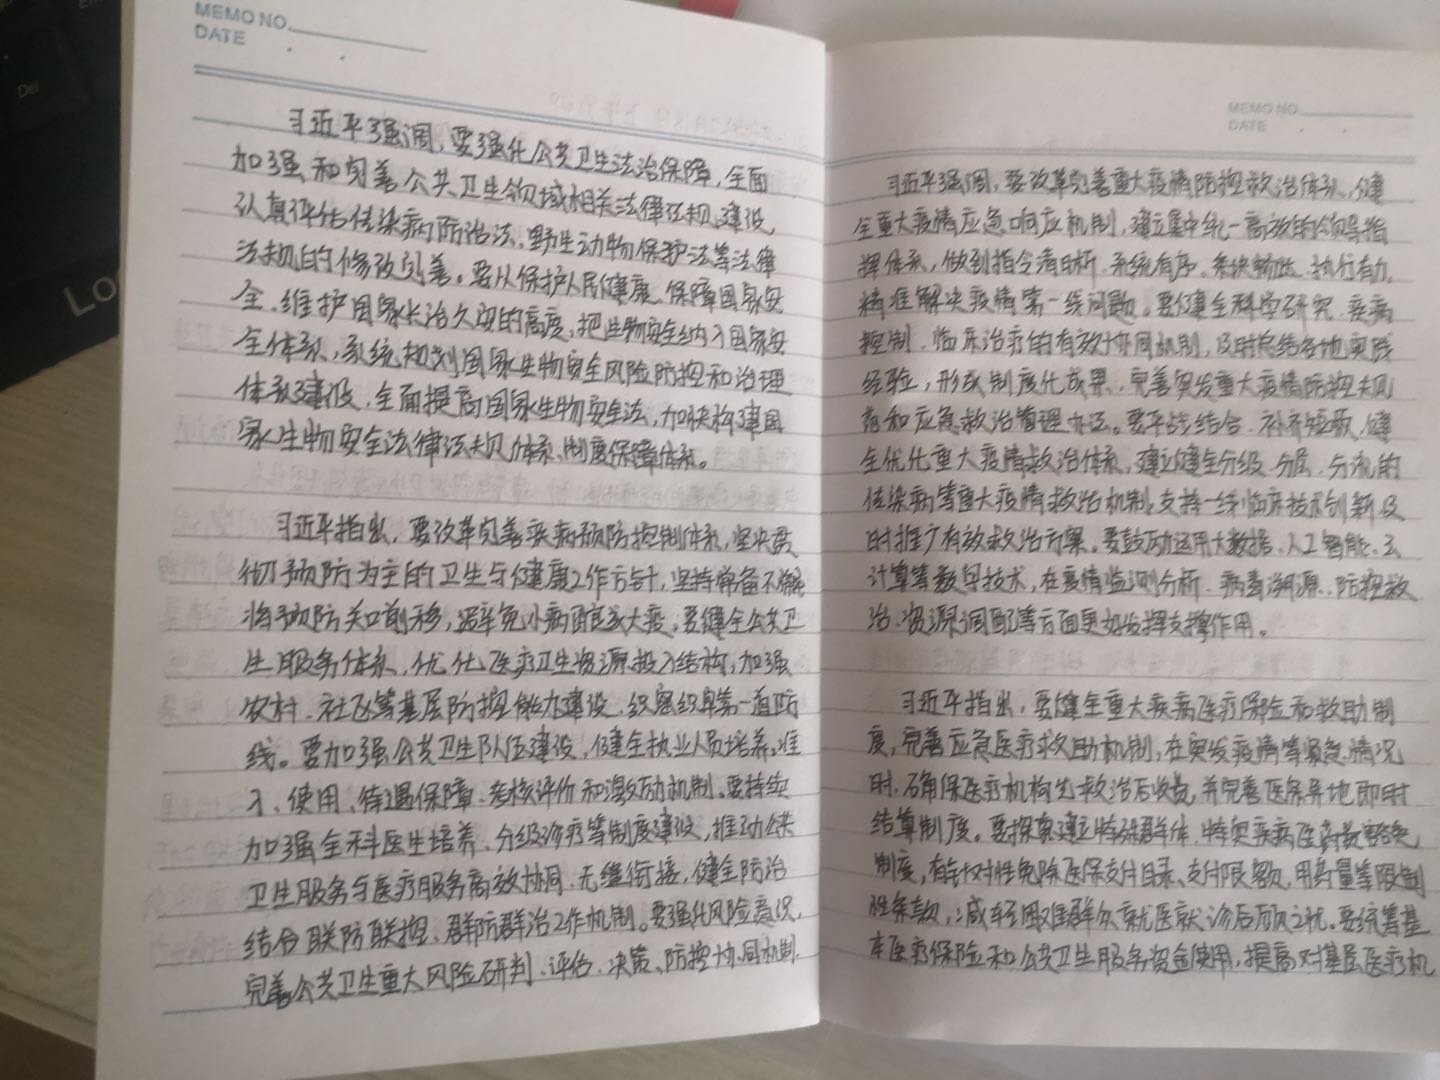 MEMO NO.
DATE
习近平强调，要强化公共卫生法治保障，全面
加强和完善公共卫生领域相关法律法规建设，
认真评估传染病防治法、野生动物保护法等法律
法规的修改完善。要从保护人民健康、保障国家安
全、维护国家长治久安的高度，把生物安全纳入国家安
全体系，系统规划国家生物安全风险防控和治理
体系建设，全面提高国家生物安全法，加快构建国
家生物安全法律法规体系、制度保障体系。
习近平指出，要改革完善疾病预防控制体系，坚决贯
彻预防为主的卫生与健康工作方针，坚持常备不懈
将预防关口前移，避免小病酿成大疫。要健全公共卫
生服务体系，优化医疗卫生资源投入结构，加强
农村、社区等基层防控能力建设，织密织牢第一道防
线。要加强公共卫生队伍建设，健全执业人员培养、准
入、使用、待遇保障、考核评价和激励机制。要持续
加强全科医生培养、分级诊疗等制度建设，推动公共
卫生服务与医疗服务高效协同、无缝衔接，健全防治
结合、联防联控、群防群治工作机制。要强化风险意识，
完善公共卫生重大风险研判、评估、决策、防控协同机制。
MEMO NO.
DATE
习近平强调，要改革完善重大疫情防控救治体系，健
全重大疫情应急响应机制，建立集中统一高效的领导指
挥体系，做到指令清晰、系统有序、条块畅达、执行有力，
精准解决疫情第一线问题。要健全科学研究、疾病
控制、临床治疗的有效协同机制，及时总结各地实践
经验，形成制度化成果，完善突发重大疫情防控规
范和应急救治管理办法。要平战结合、补齐短板，健
全优化重大疫情救治体系，建立健全分级、分层、分流的
传染病等重大疫情救治机制，支持一线临床技术创新，及
时推广有效救治方案。要鼓励运用大数据、人工智能、云
计算等数字技术，在疫情监测分析、病毒溯源、防控救
治、资源调配等方面更好发挥支撑作用。
习近平指出，要健全重大疾病医疗保险和救助制
度，完善应急医疗救助机制，在突发疫情等紧急情况
时，确保医疗机构先救治后收费，并完善医保异地即时
结算制度。要探索建立特殊群体、特定疾病医药费豁免
制度，有针对性免除医保支付目录、支付限额、用药量等限制
性条款，减轻困难群众就医就诊后顾之忧。要统筹基
本医疗保险和公共卫生服务资金使用，提高对基层医疗机